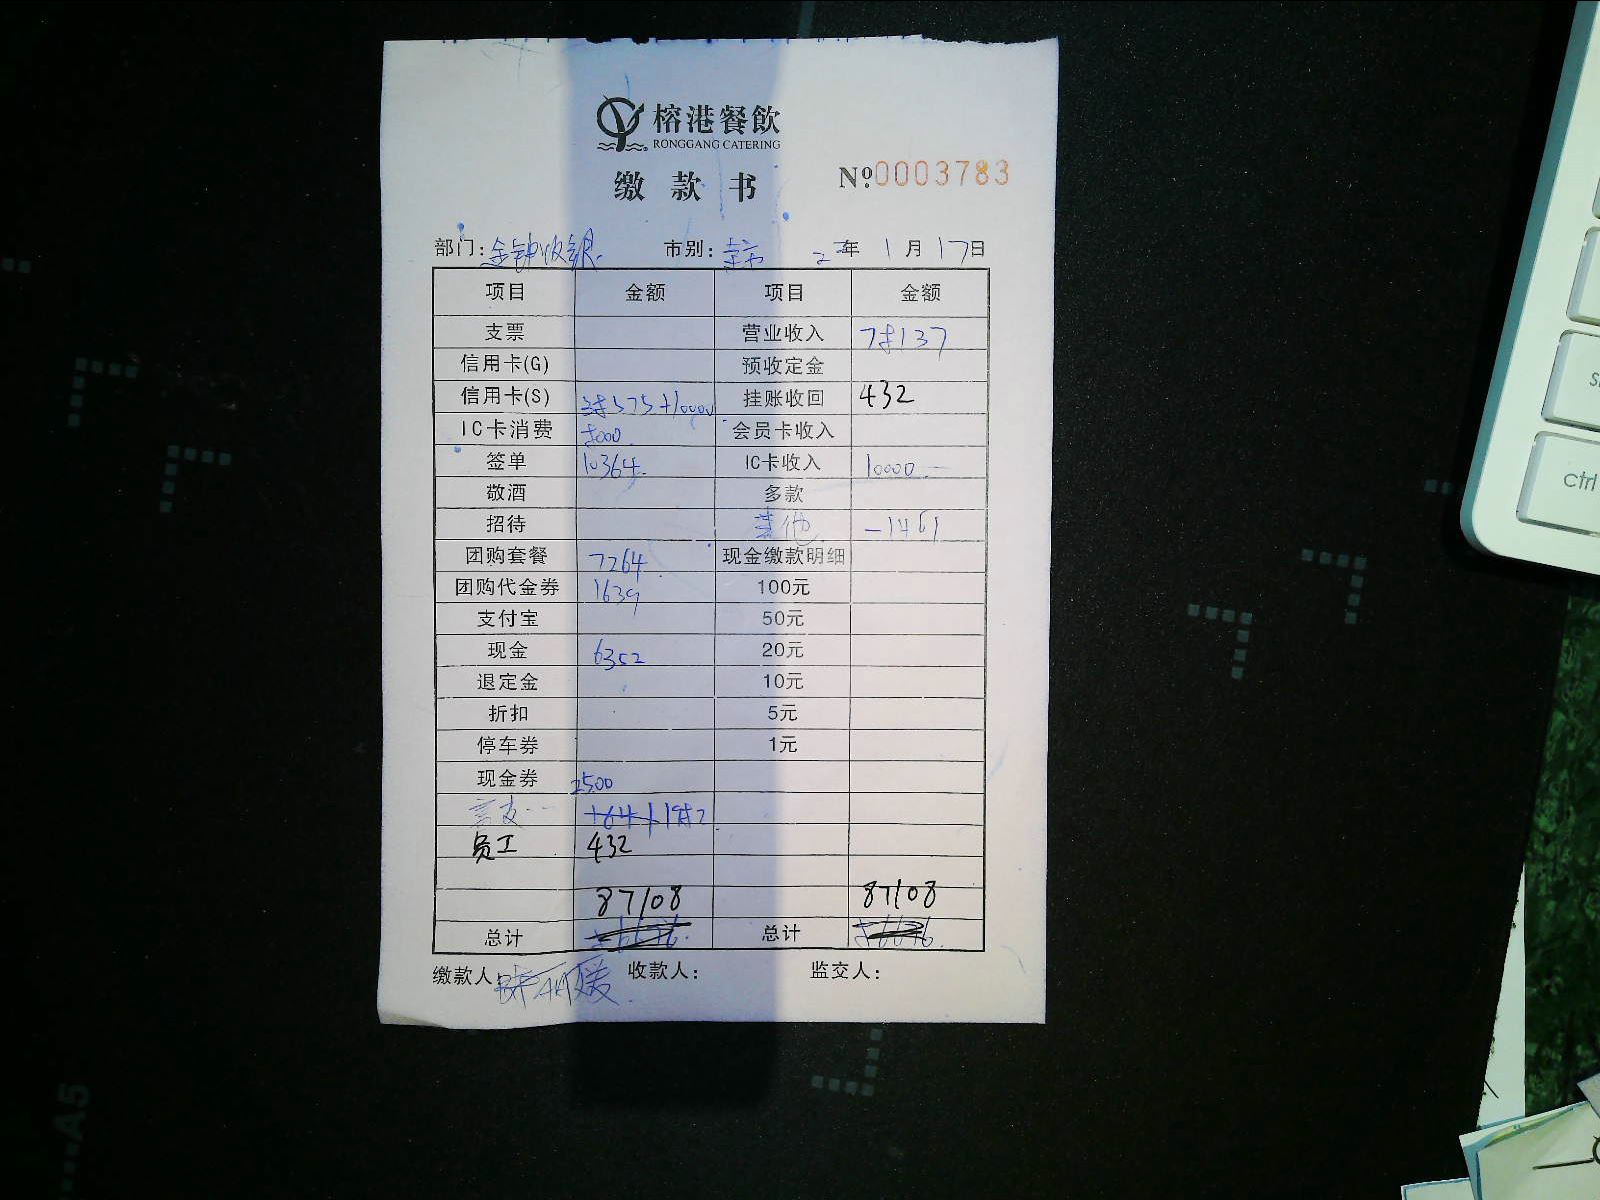 榕港餐飲
RONGGANG CATERING
缴款书
№ 0003783
部门: 金钟收银 市别: 年 1月17日
项目 金额 项目 金额
支票 营业收入 78137
信用卡(G) 预收定金
信用卡(S) 挂账收回 432
IC卡消费 会员卡收入
签单 10364. IC卡收入 10000
敬酒 多款
招待 其他 -1461
团购套餐 7264 现金缴款明细
团购代金券 1639 100元
支付宝 50元
现金 6352 20元
退定金 10元
折扣 5元
停车券 1元
现金券 2500
员工 432
87108 87108
总计 总计
缴款人: 收款人: 监交人:
A5
ctrl